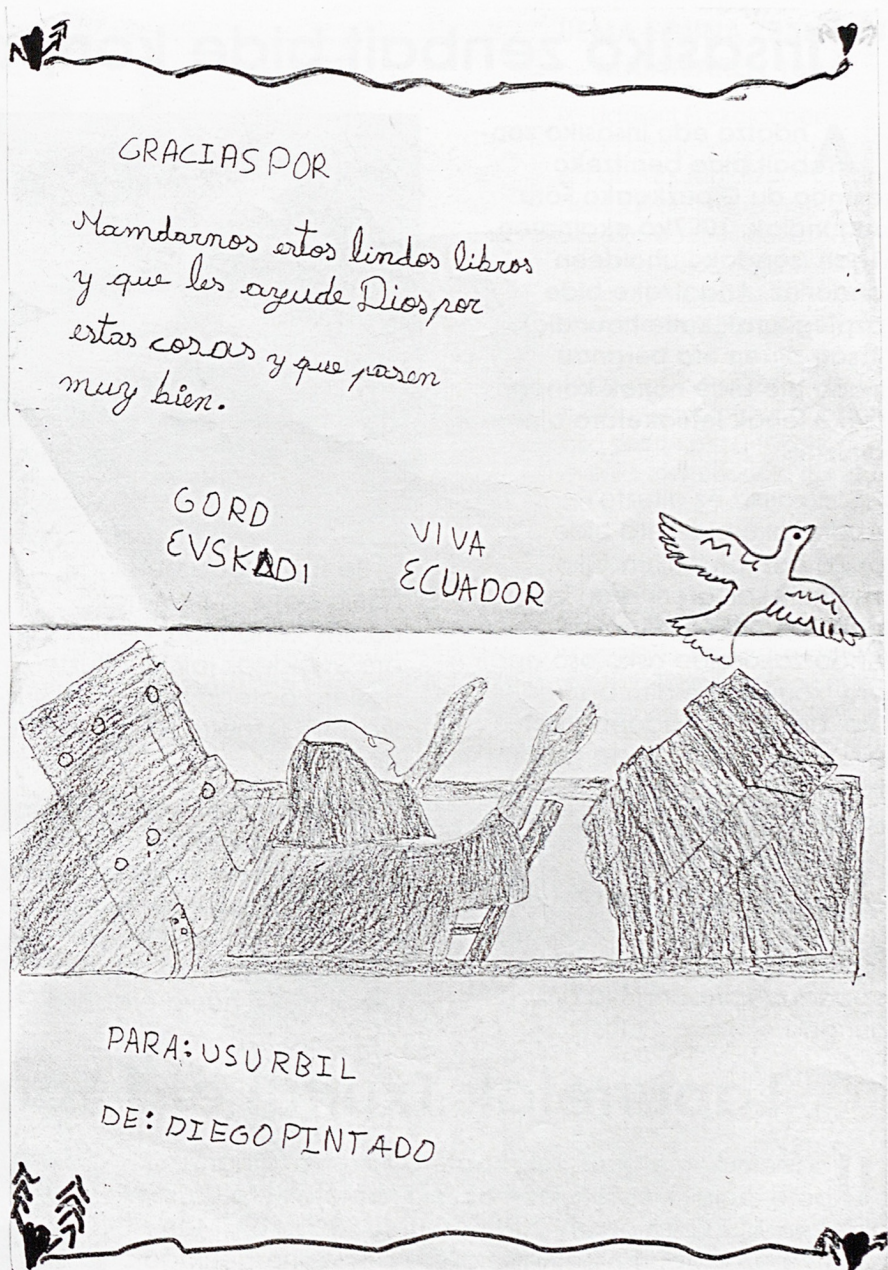 GRACIAS POR
Mamdarnos estos lindos libros
y que les ayude Dios por
estas cosas y que pasen
muy bien.
GORD
EVSKADI
VIVA
ECUADOR
PARA: USURBIL
DE: DIEGO PINTADO